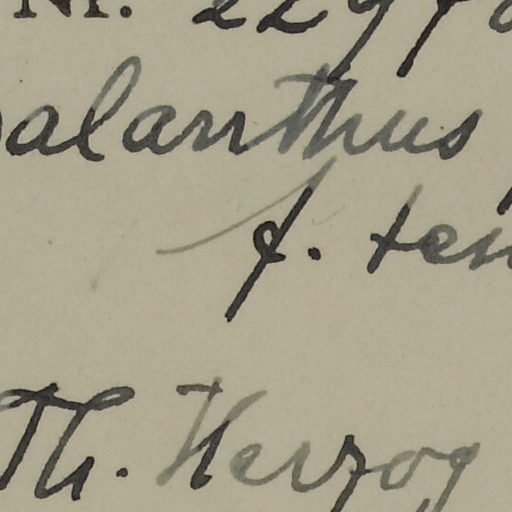 Nr.
alanthus
f. ten
Th. Herzog